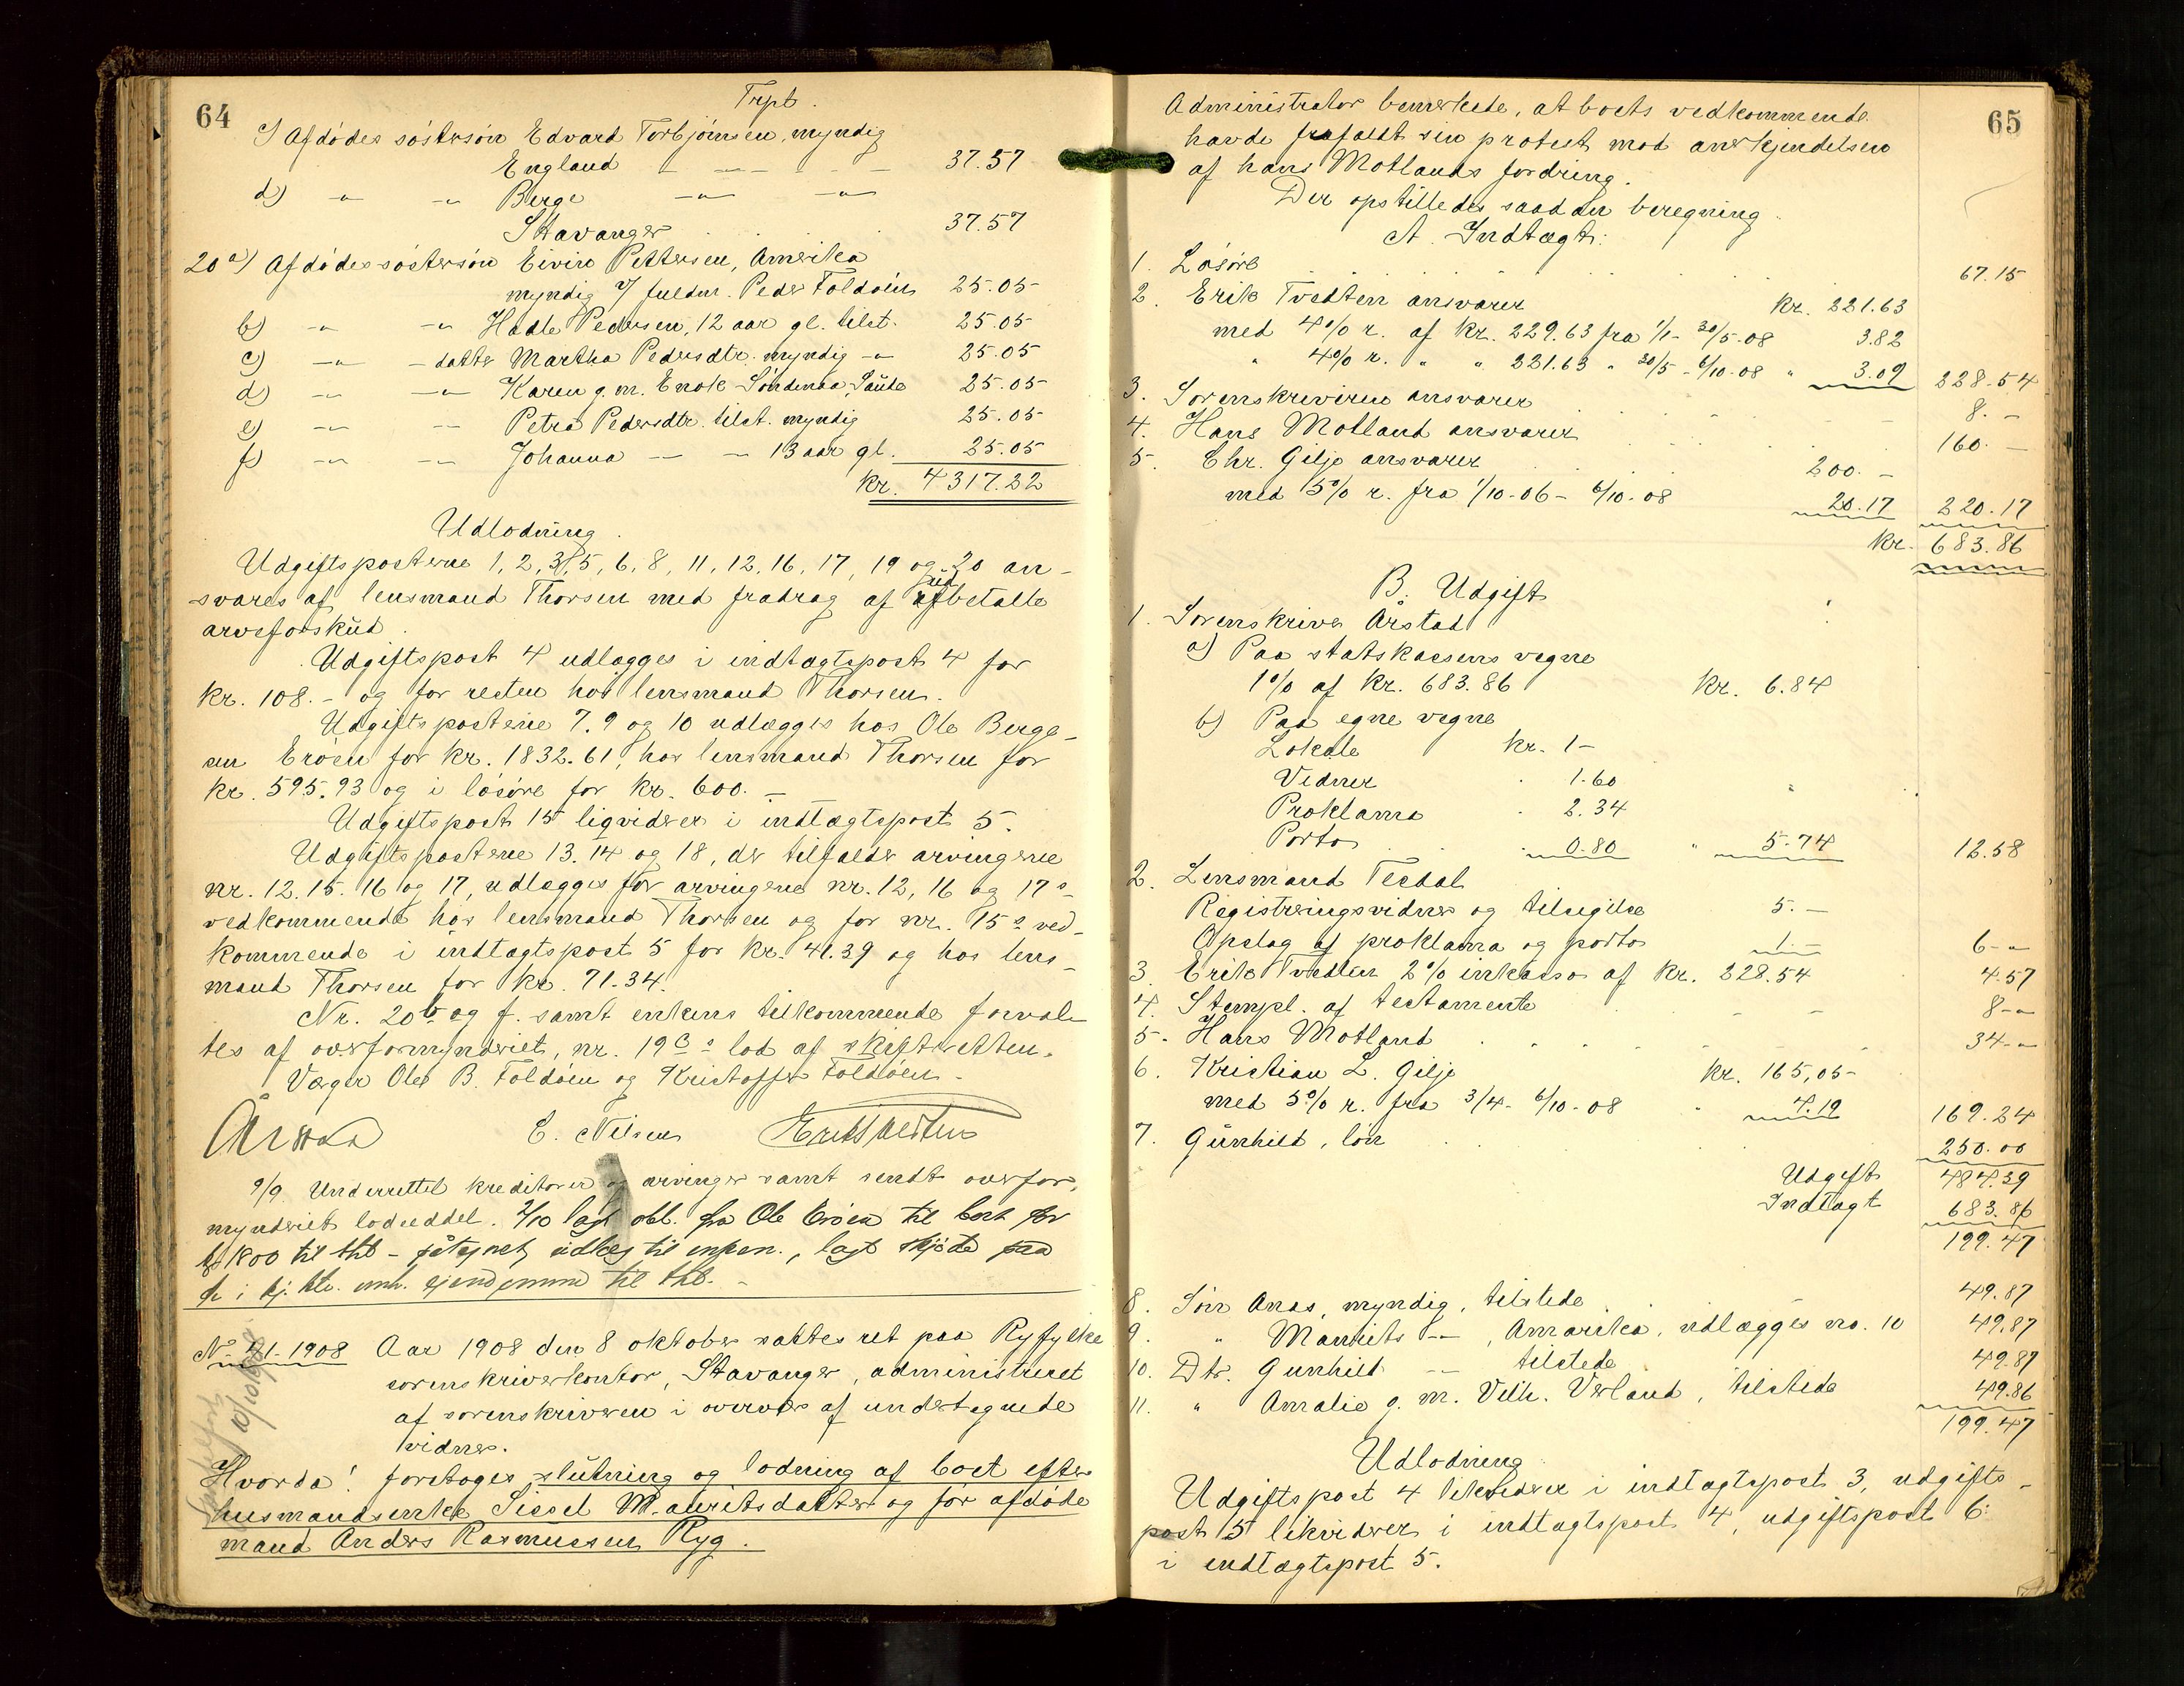 64
Trpt.
c) Afdödes söstersön Edvard Torbjörnsen, myndig
England - -"- - - 37.57
d) -"- -"- Berge -"- -"-
Stavanger . . . 37.57
20 a) Afdödes söstersön Eivin Pettersen, Amerika
myndig v/ fuldm. Peder Foldöen 25.05
b) -"- -"- Hadle Pedersen, 12 aar gl. tilst. 25.05
c) -"- - datter Martha Pedersdtr. myndig -"- 25.05
d) -"- -"- Karen g. m. Enok Söndenaa, Saude 25.05
e) -"- -"- Petra Pedersdtr. tilst. myndig 25.05
f) -"- -"- Johanna -"- -"- 13 aar gl. 25.05
Kr. 4317.22
Udlodning.
Udgiftsposterne 1, 2, 3, 5, 6, 8, 11, 12, 16, 17, 19 og 20 an-
svares af lensmand Thorsen med fradrag af udbetalte
arveforskud.
Udgiftspost 4 udlægges i indtægtspost 4 for
kr. 108.- og for resten hos lensmand Thorsen.
Udgiftsposterne 7. 9 og 10 udlægges hos Ole Berge-
sen Eröen for kr. 1832.61, hos lensmand Thorsen for
kr. 595.93 og i lösöre for kr. 600.-
Udgiftspost 15 ligviderer i indtægtspost 5.
Udgiftsposterne 13. 14 og 18, der tilfalder arvingerne
nr. 12. 15. 16 og 17, udlægges for arvingerne nr. 12, 16 og 17s
vedkommende hos lensmand Thorsen og for nr. 15s ved-
kommende i indtægtspost 5 for kr. 41.39 og hos lens-
mand Thorsen for kr. 71.34.
Nr. 20 b og f. samt enkens tilkommende forval-
tes af overformynderiet, nr. 19 c s lod af skifteretten.
Værger Ole B. Foldöen og Kristoffer Foldöen.
Årstad E. Nilsen Erik Tvedten
9/9 Underrettet kreditorer og arvinger samt sendt overfor-
mynderiet lodseddel. 2/10 lagt obl. fra Ole Eröen til boet for
kr 1800 til thl - påtegnet udlæg til enken., lagt skjöte paa
de i hj. htr. omh. ejendomme til thl.-
No 41. 1908 Aar 1908 den 8 oktober sattes ret paa Ryfylke
sorenskriverkontor, Stavanger, administreret
af sorenskriveren i overvær af undertegnede
vidner.
Hvorda! foretoges slutning og lodning af boet efter
husmandsenke Sissel Mauritsdatter og for afdöde
mand Anders Rasmussen Ryg.
65
Administrator bemerkede, at boets vedkommende
havde frafaldt sin protest mod anerkjendelsen
af hans Motlands fordring.
Der opstilledes saadan beregning
A. Indtægt:
1. Lösöre . . . 67.15
2. Erik Tvedten ansvarer kr. 221.63
med 4% r. af kr. 229.63 fra 1/1 - 30/5-08 3.82
" 4% r. " " 221.63 " 30/5 - 6/10-08 " 3.09 228.54
3. Sorenskriveren ansvarer 8.-
4. Hans Motland ansvarer 160.-
5. Chr. Gilje ansvarer 200.-
med 5% r. fra 1/10-06 - 6/10-08 20.17 220.17
kr. 683.86
B. Udgift
1. Sorenskriver Årstad
a) Paa statskassens vegne
1% af kr. 683.86 kr. 6.84
b) Paa egne vegne
Lokale kr. 1-
Vidner . 1.60
Proklama . 2.34
Porto . . 0.80 " 5.74 12.58
2. Lensmand Tesdal
Registreringsvidner og tilsigelse 5.-
Opslag af proklama og porto 1.- 6-"
3. Erik Tvedten 2% inkasso af kr. 228.54 4.57
4. Stempl. af testamente 8-"
5. Hans Motland . . . 34-"
6. Kristian L. Gilje kr. 165,05
med 5% r. fra 3/4 - 6/10-08 " 4.19 169.24
7. Gunhild, lön 250.00
Udgift 484.39
Indtægt 683.86
199.47
8. Sön Anas, myndig, tilstede 49.87
9. " Maurits -"-, Amerika, udlægges no. 10 49.87
10. Dtr. Gunhild -"- tilstede 49.87
11. " Amalie g. m. Vilh. Verland, tilstede 49.86
199.47
Udlodning
Udgiftspost 4 likviderer i indtægtspost 3, udgifts-
post 5 likviderer i indtægtspost 4, udgiftspost 6
i indtægtspost 5.